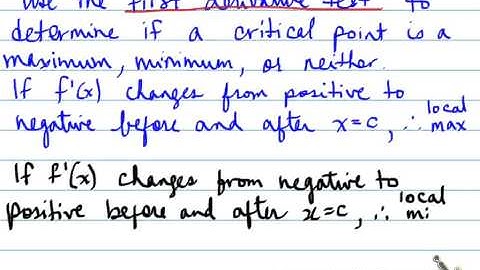 use the first derivative test to
determine if a critical point is a
maximum, minimum, or neither.
If f'(x) changes from positive to
negative before and after x=c, ∴ local max
If f'(x) changes from negative to
positive before and after x=c, ∴ local mi